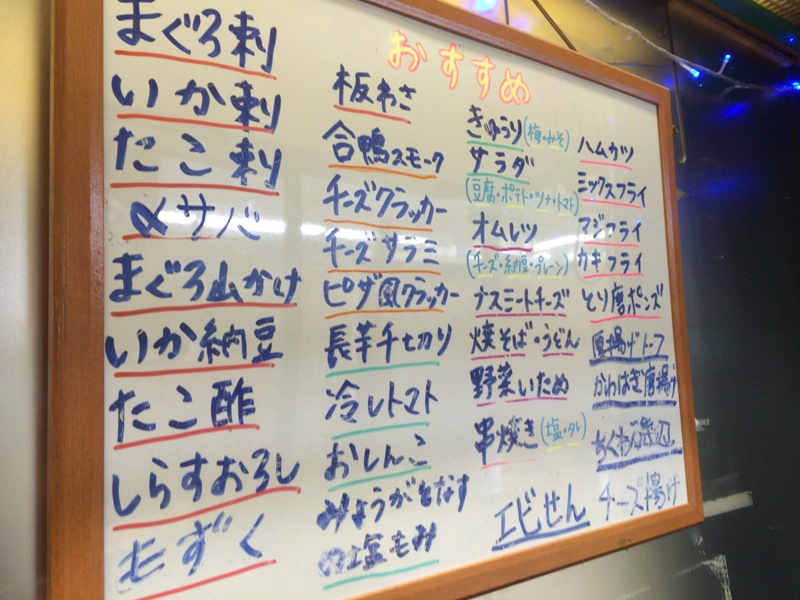 おすすめ
まぐろ刺
いか刺
たこ刺
〆サバ
まぐろ山かけ
いか納豆
たこ酢
しらすおろし
もずく
板わさ
合鴨スモーク
チーズクラッカー
チーズサラミ
ピザ風クラッカー
長芋千切り
冷しトマト
おしんこ
みょうがとなす
の塩もみ
きゅうり(梅・みそ)
サラダ
(豆腐・ポテト・ツナ・トマト)
オムレツ
(チーズ・納豆・プレーン)
ナスミートチーズ
焼そば・うどん
野菜いため
串焼き(塩・タレ)
エビせん
ハムカツ
ミックスフライ
アジフライ
カキフライ
とり唐ポンズ
厚揚げトーフ
かわはぎ唐揚げ
ちくわ磯辺
チーズ揚げ